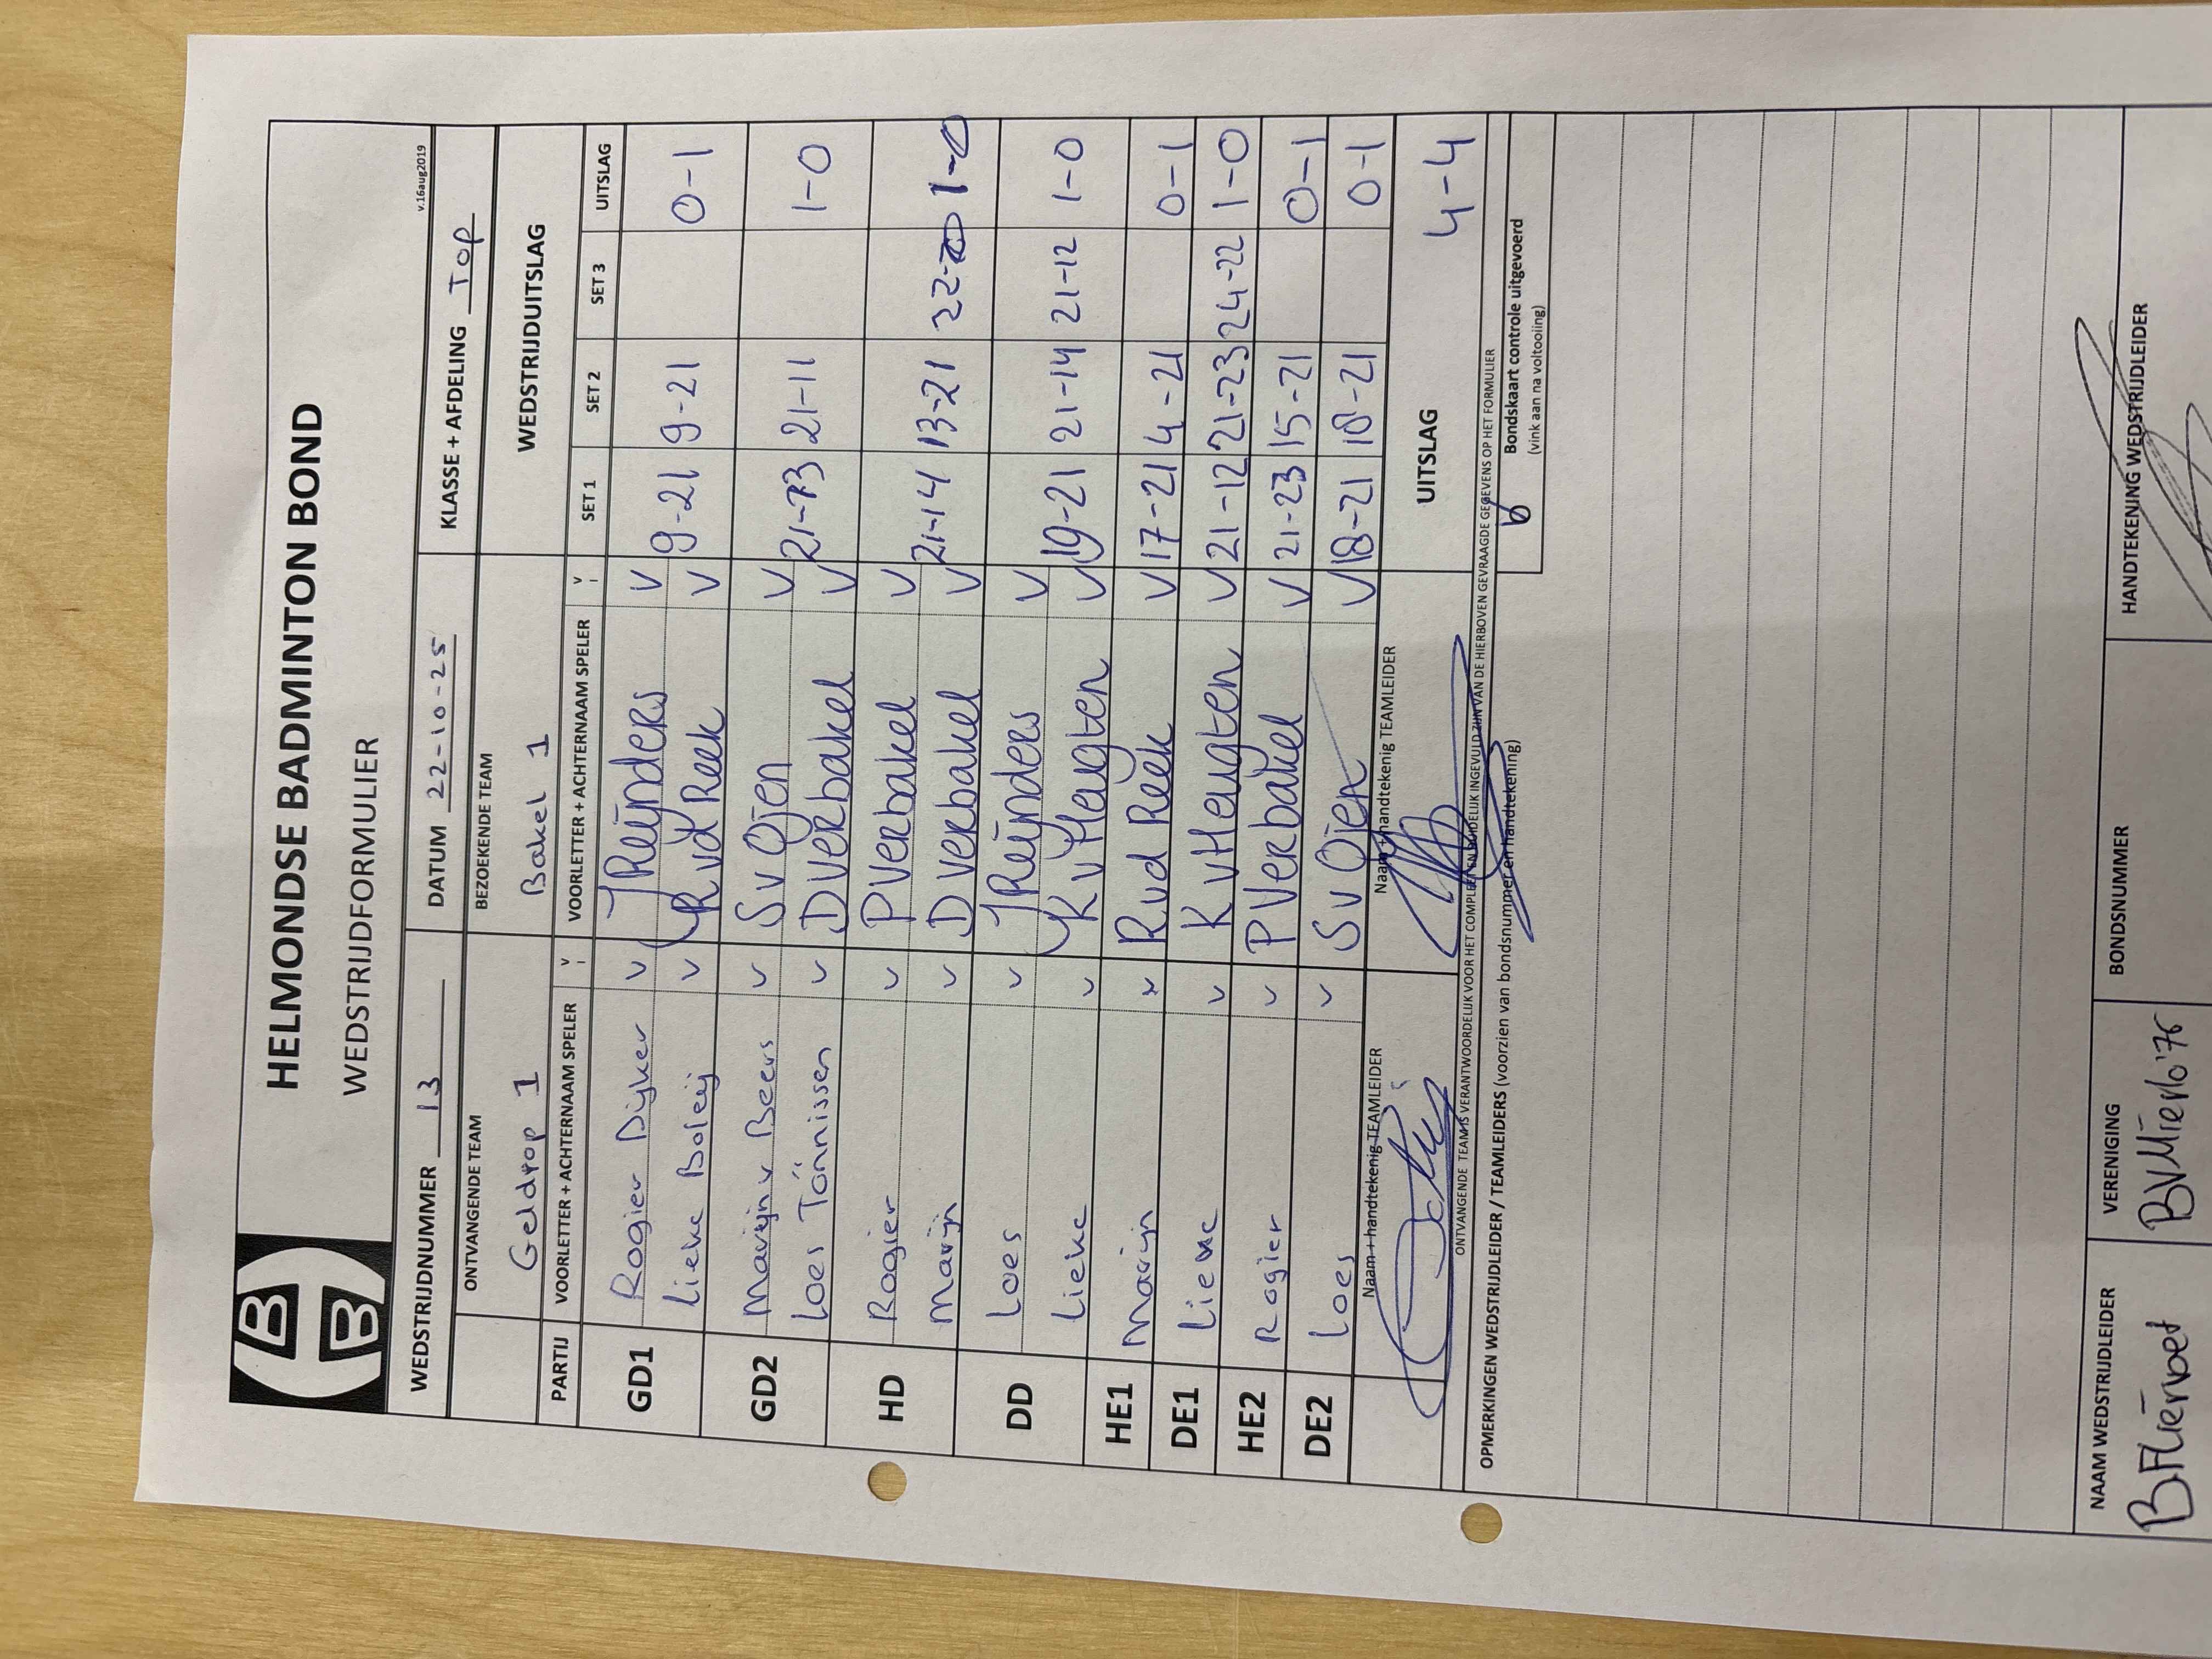 HELMONDSE BADMINTON BOND
WEDSTRIJDFORMULIER
v.16aug2019
WEDSTRIJDNUMMER 13 DATUM 22-10-25 KLASSE + AFDELING TOP
ONTVANGENDE TEAM BEZOEKENDE TEAM WEDSTRIJDUITSLAG
Geldrop 1 Bakel 1
PARTIJ VOORLETTER + ACHTERNAAM SPELER V VOORLETTER + ACHTERNAAM SPELER V SET 1 SET 2 SET 3 UITSLAG
GD1 Rogier Dijker V J Reijnders V
Lieke Boleij V R vd Reek V 9-21 9-21 0-1
GD2 Marijn v Beers V S v Ojen V
Loes Tönnissen V D Verbakel V 21-13 21-11 1-0
HD Rogier V P Verbakel V
Marijn V D Verbakel V 21-14 13-21 22-20 1-0
DD Loes V J Reijnders V
Lieke V K v Heugten V 19-21 21-14 21-12 1-0
HE1 Marijn V R vd Reek V 17-21 4-21 0-1
DE1 Lieke V K v Heugten V 21-12 21-23 24-22 1-0
HE2 Rogier V P Verbakel V 21-23 15-21 0-1
DE2 Loes V S v Ojen V 18-21 18-21 0-1
Naam + handtekenig TEAMLEIDER Naam + handtekenig TEAMLEIDER UITSLAG 4-4
ONTVANGENDE TEAM IS VERANTWOORDELIJK VOOR HET COMPLEET EN DUIDELIJK INGEVULD ZIJN VAN DE HIERBOVEN GEVRAAGDE GEGEVENS OP HET FORMULIER
OPMERKINGEN WEDSTRIJDLEIDER / TEAMLEIDERS (voorzien van bondsnummer en handtekening) Bondskaart controle uitgevoerd
(vink aan na voltooiing)
NAAM WEDSTRIJDLEIDER VERENIGING BONDSNUMMER HANDTEKENING WEDSTRIJDLEIDER
B Fliervoet BV Mierlo '76